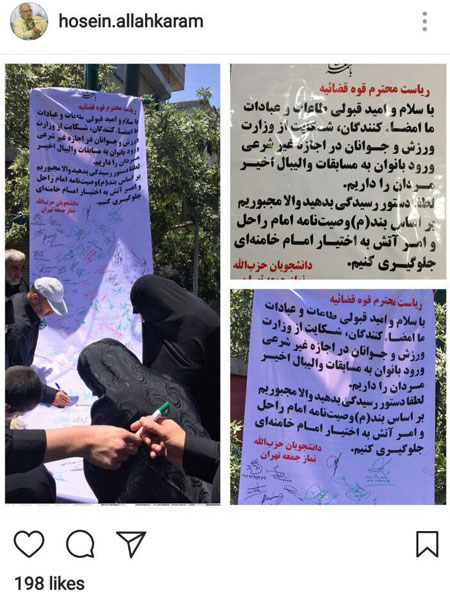 hosein.allahkaram
ریاست محترم قوه قضائیه
با سلام و امید قبولی طاعات و عبادات
ما امضاء کنندگان، شکایت از وزارت
ورزش و جوانان در اجازه غیر شرعی
ورود بانوان به مسابقات والیبال اخیر
مردان را داریم.
لطفا دستور رسیدگی بدهید والا مجبوریم
بر اساس بند(م)وصیت‌نامه امام راحل
و امر آتش به اختیار امام خامنه‌ای
جلوگیری کنیم.
دانشجویان حزب‌الله
نماز جمعه تهران
ریاست محترم قوه قضائیه
با سلام و امید قبولی طاعات و عبادات
ما امضاء کنندگان، شکایت از وزارت
ورزش و جوانان در اجازه غیر شرعی
ورود بانوان به مسابقات والیبال اخیر
مردان را داریم.
لطفا دستور رسیدگی بدهید والا مجبوریم
بر اساس بند(م)وصیت‌نامه امام راحل
و امر آتش به اختیار امام خامنه‌ای
جلوگیری کنیم.
دانشجویان حزب‌الله
نماز جمعه تهران
ریاست محترم قوه قضائیه
با سلام و امید قبولی طاعات و عبادات
ما امضاء کنندگان، شکایت از وزارت
ورزش و جوانان در اجازه غیر شرعی
ورود بانوان به مسابقات والیبال اخیر
مردان را داریم.
لطفا دستور رسیدگی بدهید والا مجبوریم
بر اساس بند(م)وصیت‌نامه امام راحل
و امر آتش به اختیار امام خامنه‌ای
جلوگیری کنیم.
دانشجویان حزب‌الله
نماز جمعه تهران
198 likes